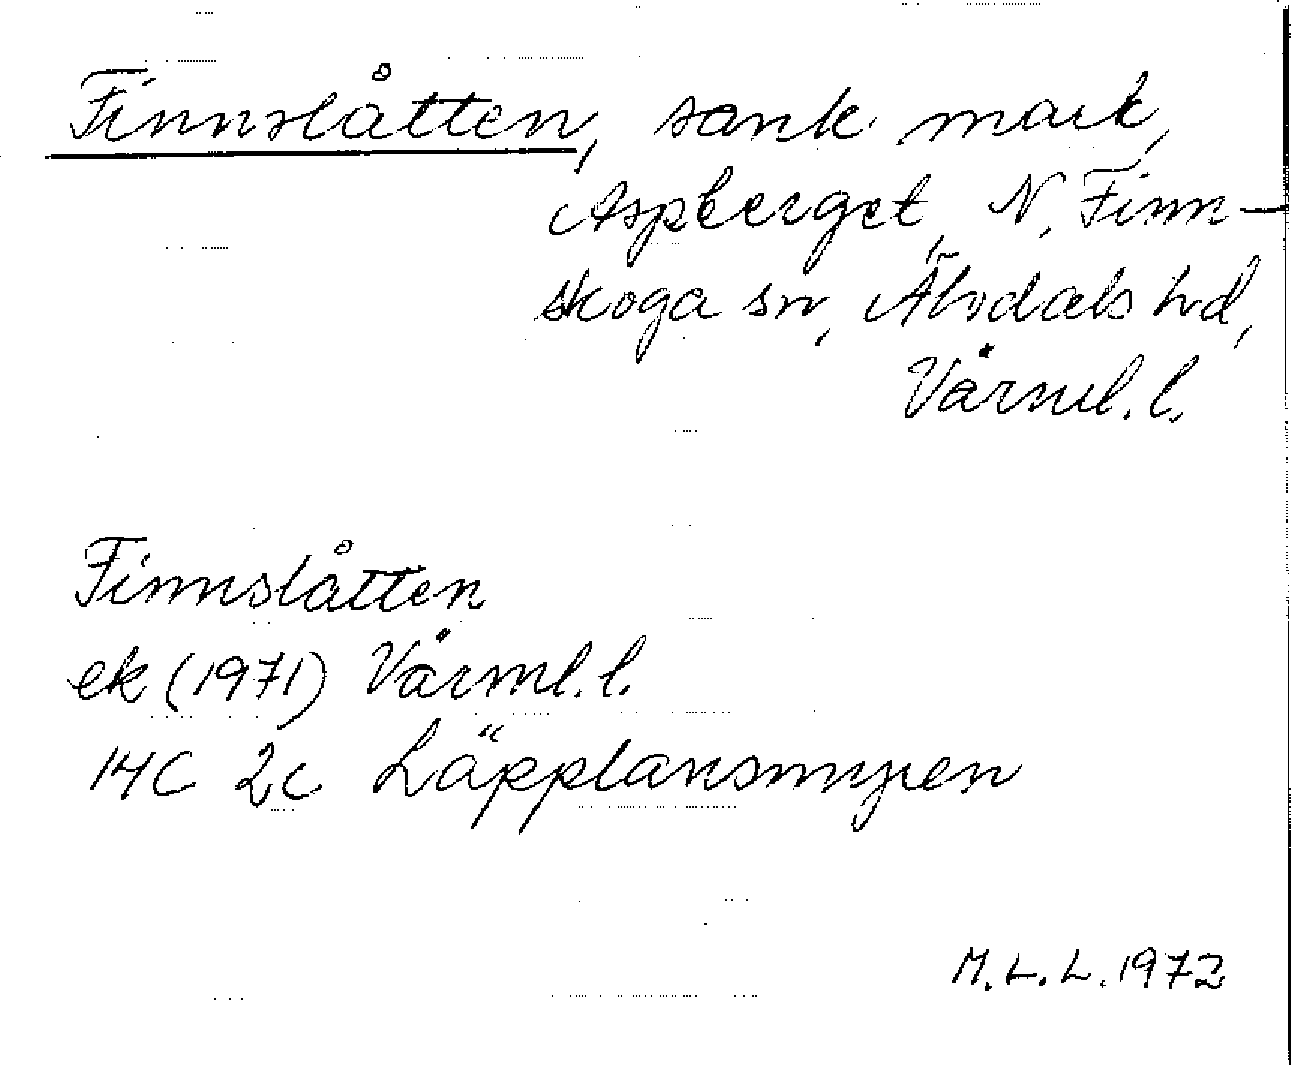 Finnslåtten, sank mark,
Aspberget, N. Finn-
skoga sn, Älvdals hd,
Värml. l.
Finnslåtten
ek (1971) Värml. l.
14C 2c Läpplansmyren
M.L.L. 1972